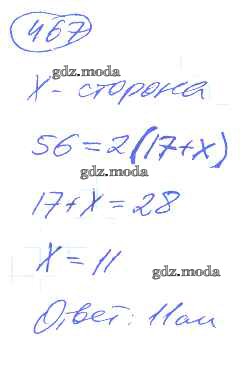 467
gdz.moda
X - сторона
56 = 2(17+x)
gdz.moda
17 + x = 28
x = 11
gdz.moda
Ответ: 11 см
gdz.moda